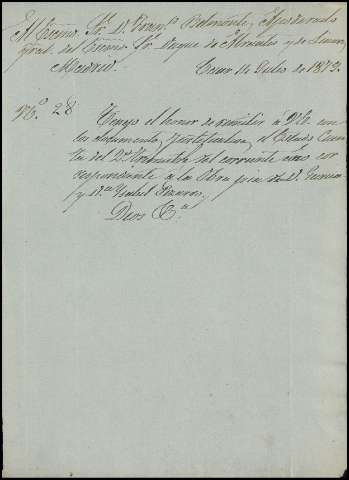 Al Excmo. Sr. D. Franco. Belmonte, Apoderado
gral. del Excmo. Sr. Duque de Abrantes y de Linares
Madrid.
14 Julio de 1873.
No. 28
Tengo el honor de remitir á V.E. con
los documentos justificativos, el Estado Cuen-
ta del 2o. trimestre del corriente año cor-
respondiente a la Obra pia de D.
y Da. Isabel
Dios &a.